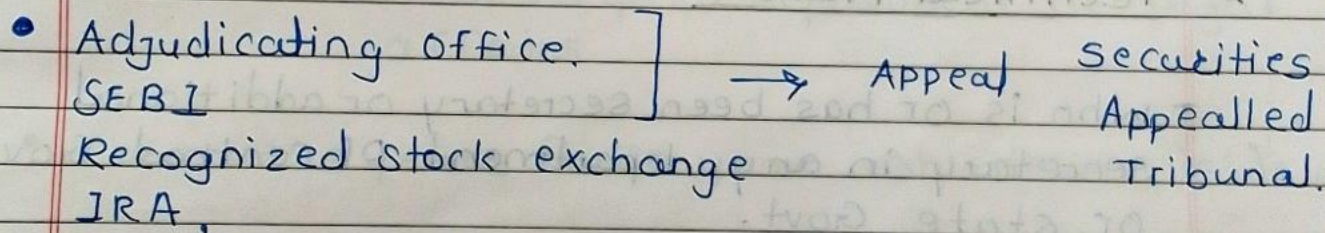 • Adjudicating office.
SEBI
Recognized stock exchange
IRA.
→ Appeal
Securities
Appealled
Tribunal.